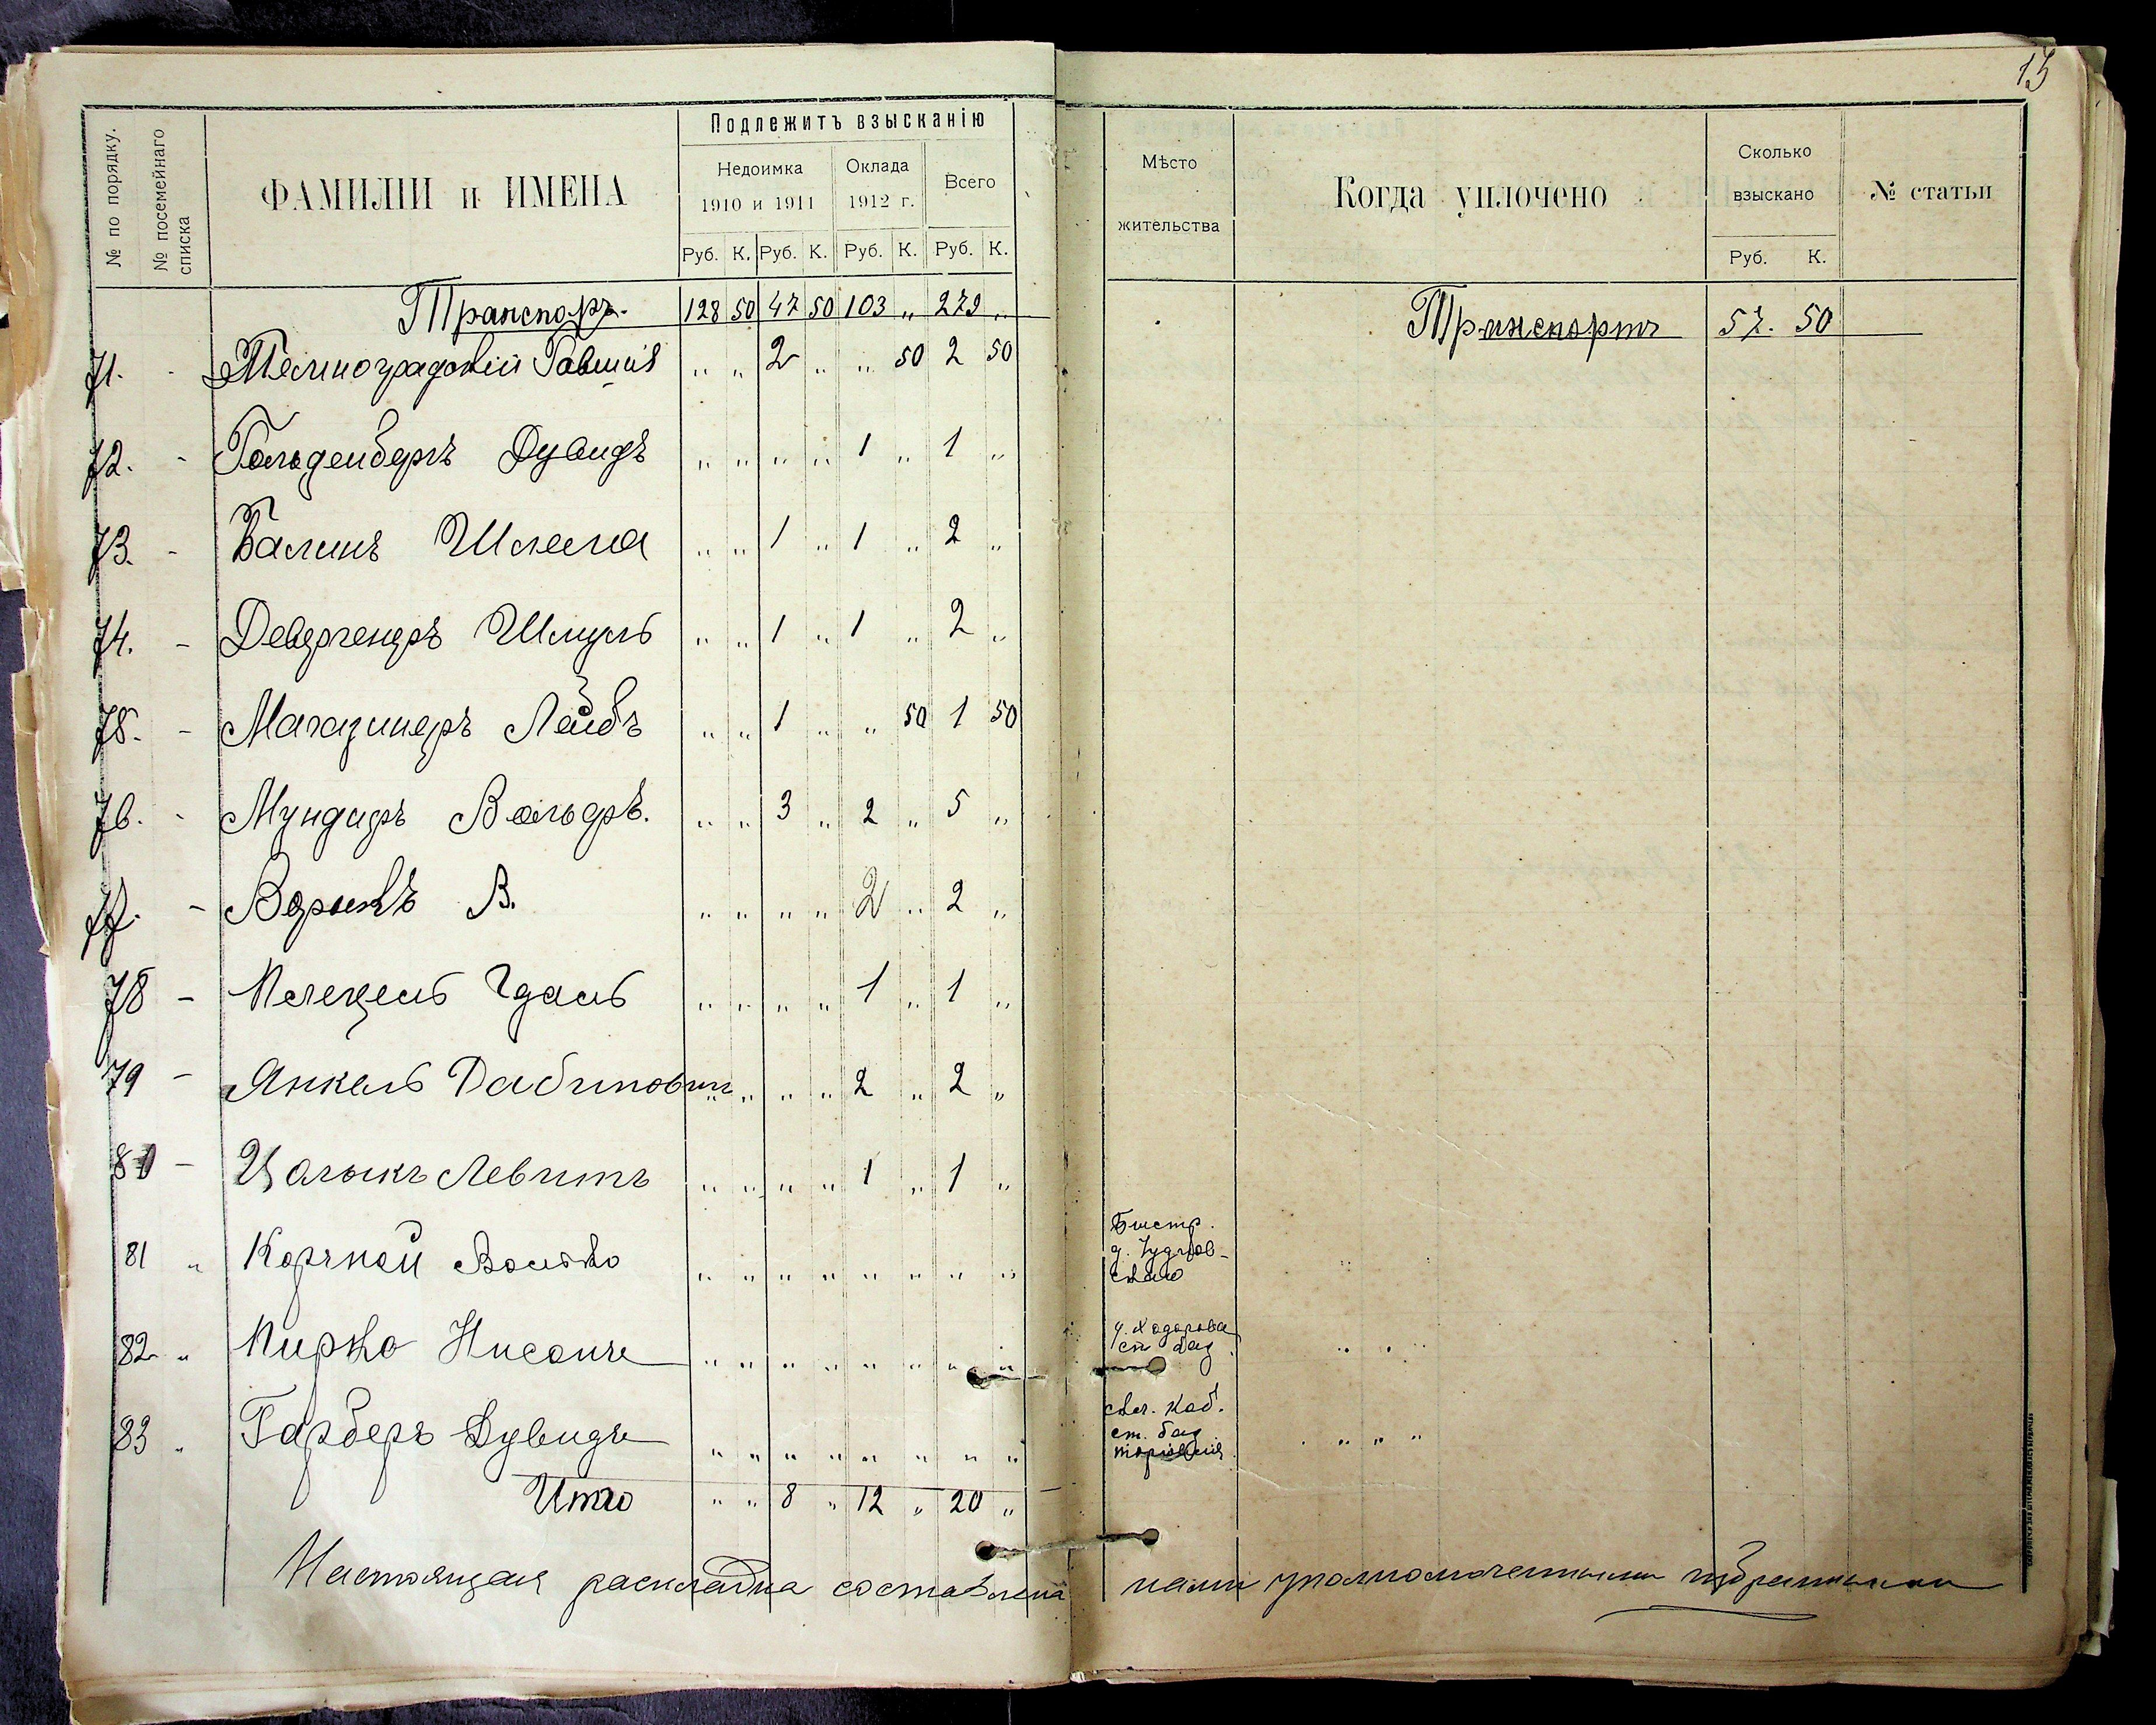 15
№ по порядку.
№ посемейнаго списка
ФАМИЛІИ и ИМЕНА
Подлежитъ взысканію
Недоимка
1910 и 1911
Оклада
1912 г.
Всего
Руб. К. Руб. К. Руб. К. Руб. К.
Транспортъ 128 50 47 50 103 „ 279 „
71. - Гавшія „ „ 2 „ „ 50 2 50
72. - Гольденбергъ Дувидъ „ „ „ „ 1 „ 1 „
73. - Балинъ Шлема „ „ 1 „ 1 „ 2 „
74. - Шмуль „ „ 1 „ 1 „ 2 „
75. - Магазинеръ Лейбъ „ „ 1 „ „ 50 1 50
76. - Мундиръ Вольфъ. „ „ 3 „ 2 „ 5 „
77. - В. „ „ „ „ 2 „ 2 „
78 - Пелецель Гдаль „ „ „ „ 1 „ 1 „
79 - Янкель Рабиновичъ „ „ „ „ 2 „ 2 „
80 - Цалыкъ Левитъ „ „ „ „ 1 „ 1 „
81 „ Корчной Волько „ „ „ „ „ „ „ „
82 „ Пирко Нисонъ „ „ „ „ „ „ „ „
83 „ Гарберъ Дувидъ „ „ „ „ „ „ „ „
Итого „ „ 8 „ 12 „ 20 „
Мѣсто
жительства
Когда уплочено
Сколько
взыскано
Руб. К.
№ статьи
Транспортъ 57. 50
Быстр.
Настоящая раскладка составлена нами уполномоченными избранными